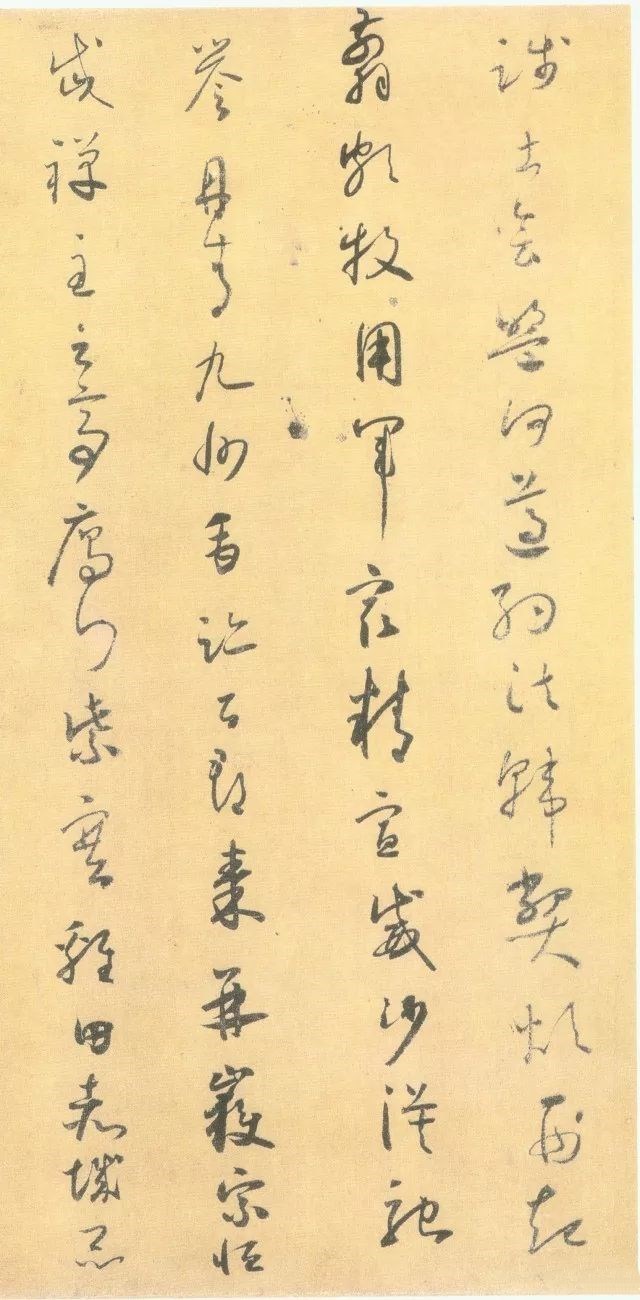 踐土會盟何遵約法韓弊煩刑起
翦頗牧用軍最精宣威沙漠馳
譽丹青九州禹跡百郡秦并嶽宗恒
岱禪主云亭雁門紫塞雞田赤城昆